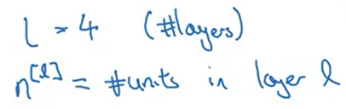 L = 4 (#layers)
n^[l] = #units in layer l